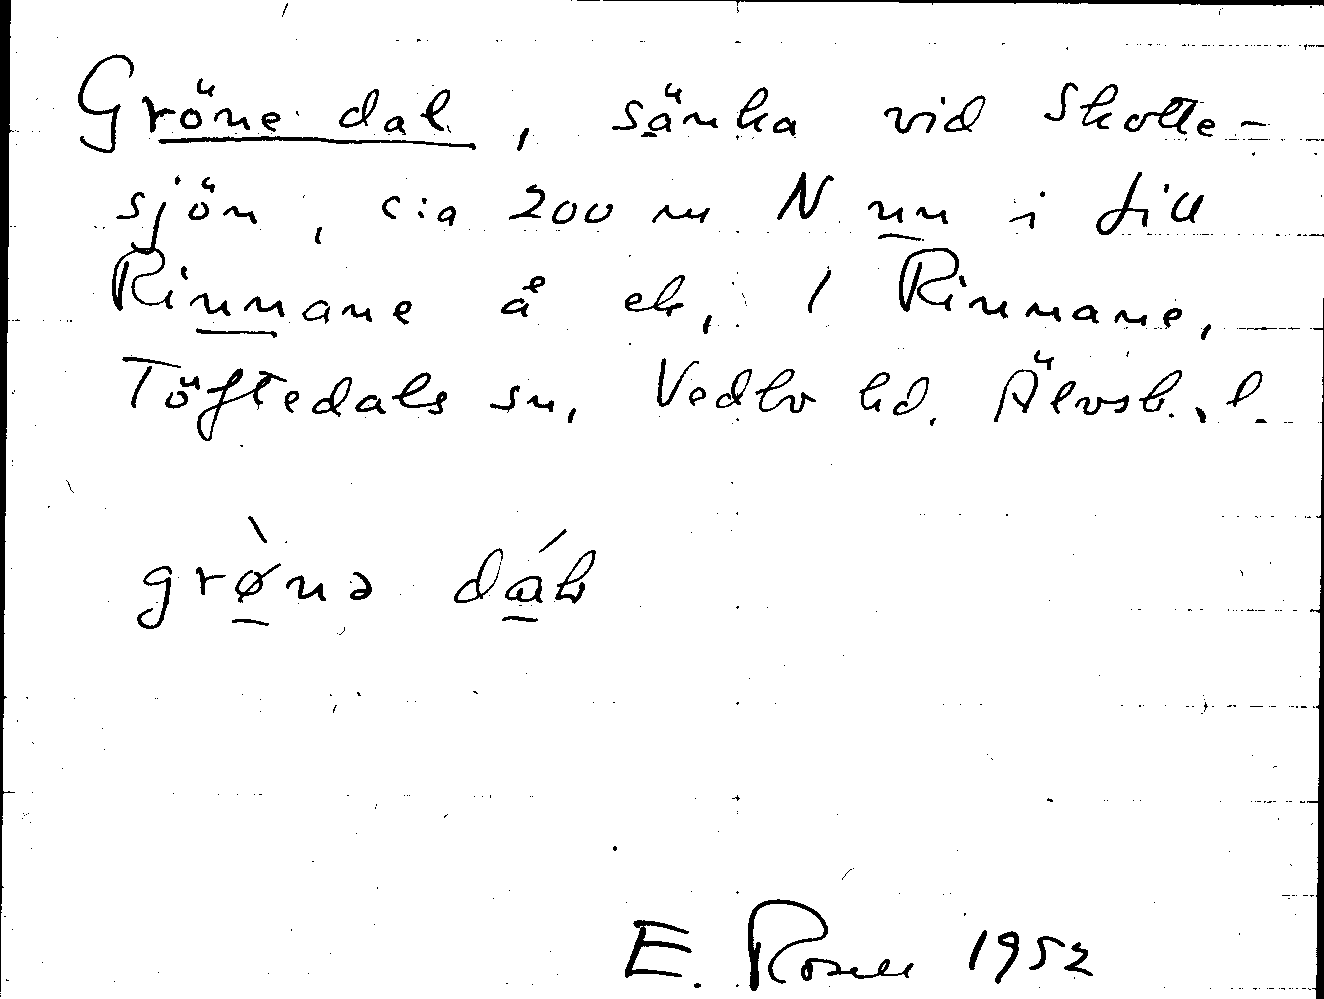 Gröne dal, sänka vid Skotte-
sjön, c:a 200 m N nn i till
Rinnane å ek, 1 Rinnane,
Töftedals sn, Vedbo hd. Älvsb. l.
grø̀nə dáɫ
E. Rosell 1952